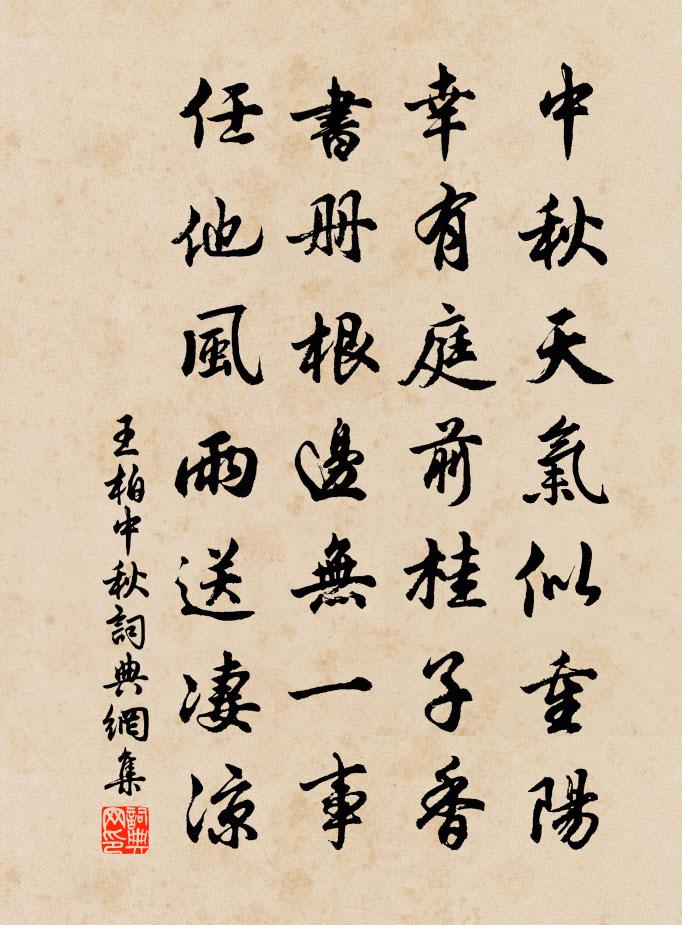 中秋天氣似重陽
幸有庭前桂子香
書册根邊無一事
任他風雨送凄涼
王柏中秋詞典網集
詞典网印